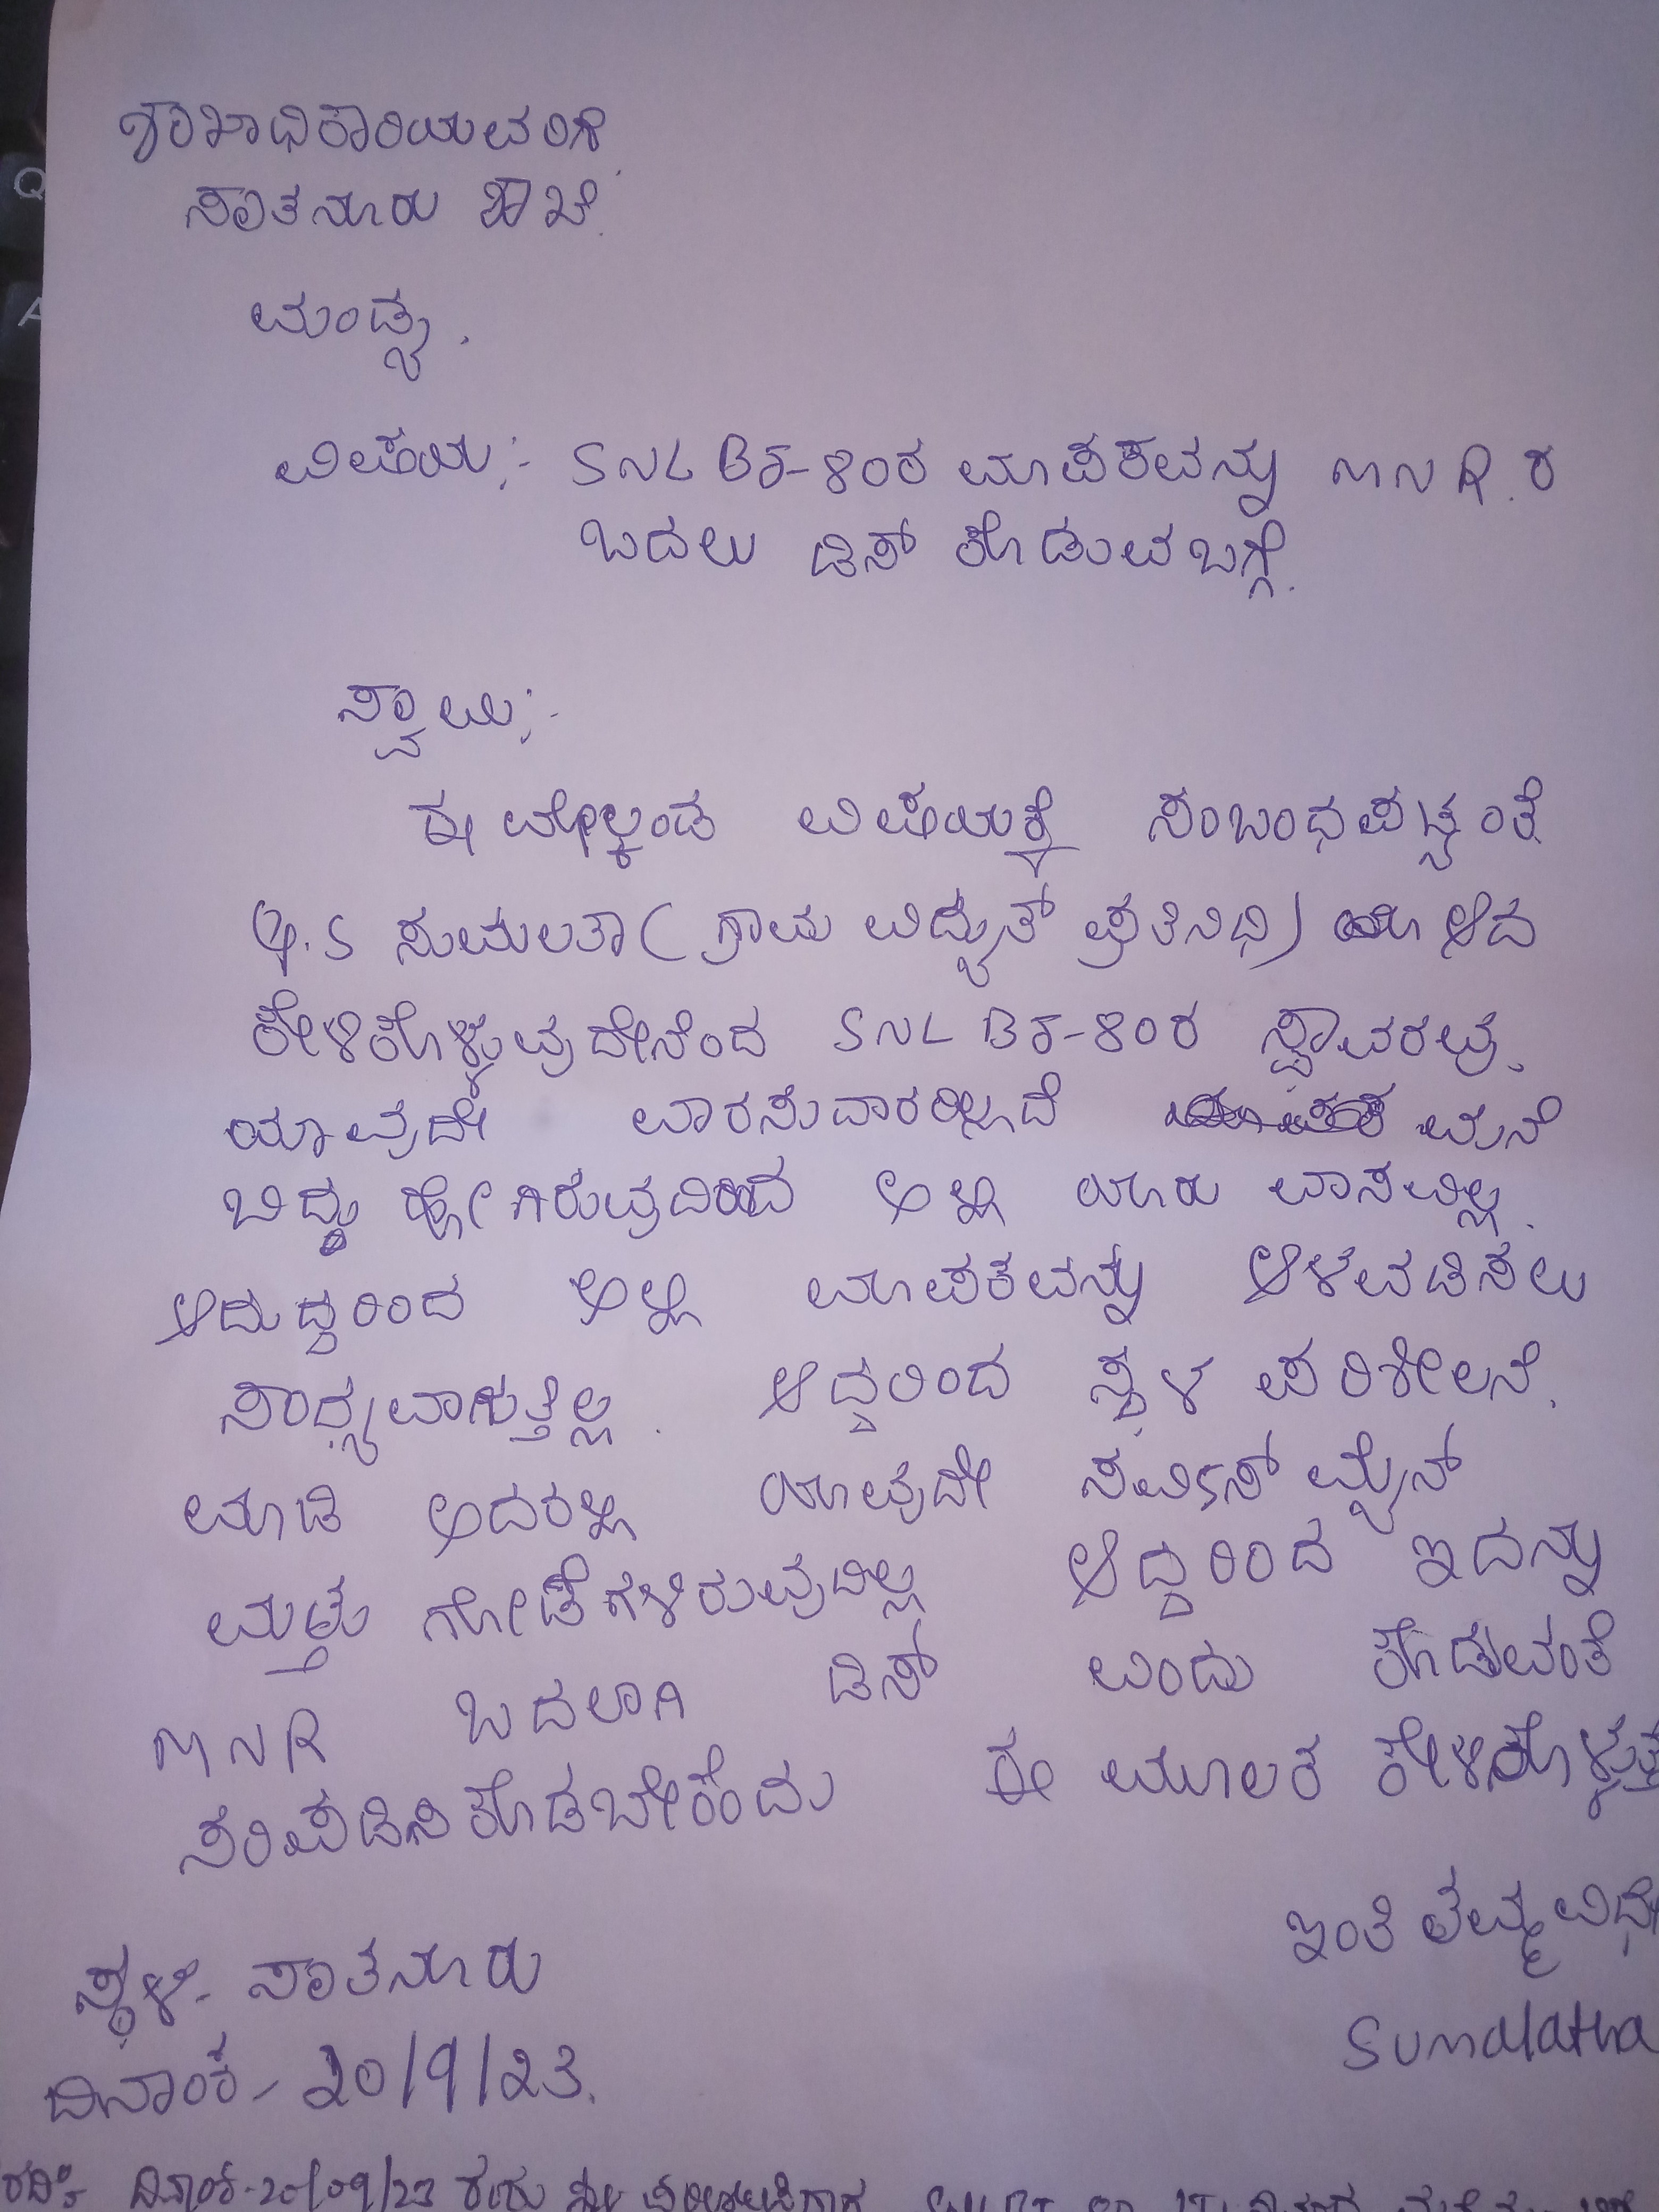 ಶಾಖಾಧಿಕಾರಿಯವರಿಗೆ
ಸಾತನೂರು ಶಾಖೆ.
ಮಂಡ್ಯ.
ವಿಷಯ:- SNLBJ-80ರ ಮಾಪಕವನ್ನು MNR.ರ
ಬದಲು ಡಿಸ್ ಕೊಡುವ ಬಗ್ಗೆ.
ಸ್ವಾಮಿ:-
ಈ ಮೇಲ್ಕಂಡ ವಿಷಯಕ್ಕೆ ಸಂಬಂಧಪಟ್ಟಂತೆ
ಸುಮಲತಾ (ಗ್ರಾಮ ವಿದ್ಯುತ್ ಪ್ರತಿನಿಧಿ) ಆದ
ಕೇಳಿಕೊಳ್ಳುವುದೇನೆಂದ SNLBJ-80ರ ಸ್ಥಾವರವು
ಯಾವುದೇ ವಾರಸುದಾರರಿಲ್ಲದೆ ಮನೆ
ಬಿದ್ದು ಹೋಗಿರುವುದರಿಂದ ಅಲ್ಲಿ ಯಾರು ವಾಸವಿಲ್ಲ.
ಆದುದ್ದರಿಂದ ಅಲ್ಲಿ ಮಾಪಕವನ್ನು ಅಳವಡಿಸಲು
ಸಾಧ್ಯವಾಗುತ್ತಿಲ್ಲ. ಆದ್ದರಿಂದ ಸ್ಥಳ ಪರಿಶೀಲನೆ.
ಮಾಡಿ ಅದರಲ್ಲಿ ಯಾವುದೇ ಸರ್ವಿಸ್ ಮೈನ್
ಮತ್ತು ಗೋಡೆಗಳಿರುವುದಿಲ್ಲ ಆದ್ದರಿಂದ ಇದನ್ನು
MNR ಬದಲಾಗಿ ಡಿಸ್ ಎಂದು ಕೊಡುವಂತೆ
ಸರಿಪಡಿಸಿಕೊಡಬೇಕೆಂದು ಈ ಮೂಲಕ ಕೇಳಿಕೊಳ್ಳುತ್ತೆ
ಇಂತಿ ತಮ್ಮ ವಿಧೇ
ಸ್ಥಳ- ಸಾತನೂರು
Sumalatha
ದಿನಾಂಕ- 20/9/23.
ದಿನಾಂಕ-20/09/23